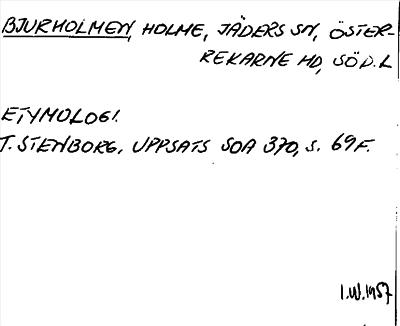 BJURHOLMEN, HOLME, JÄDERS SN, ÖSTER-
REKARNE HD, SÖD.L
ETYMOLOGI.
T. STENBORG, UPPSATS SOA 370, S. 69F.
I.W.1957